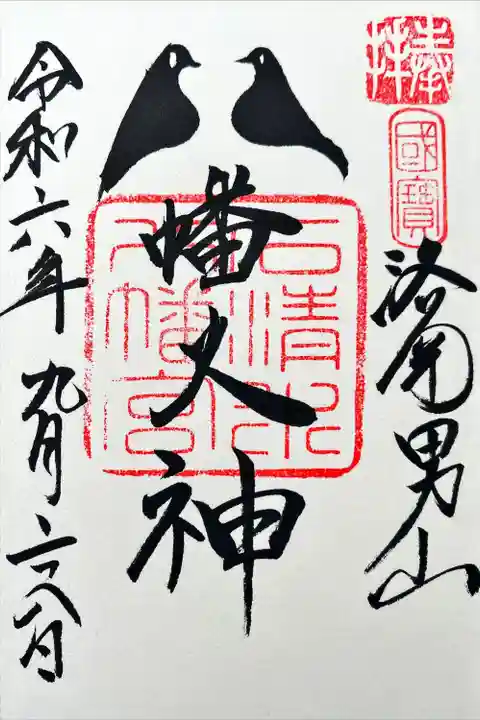 奉拝
國寶
洛南男山
八幡大神
石清水
八幡宮
令和六年九月二八日